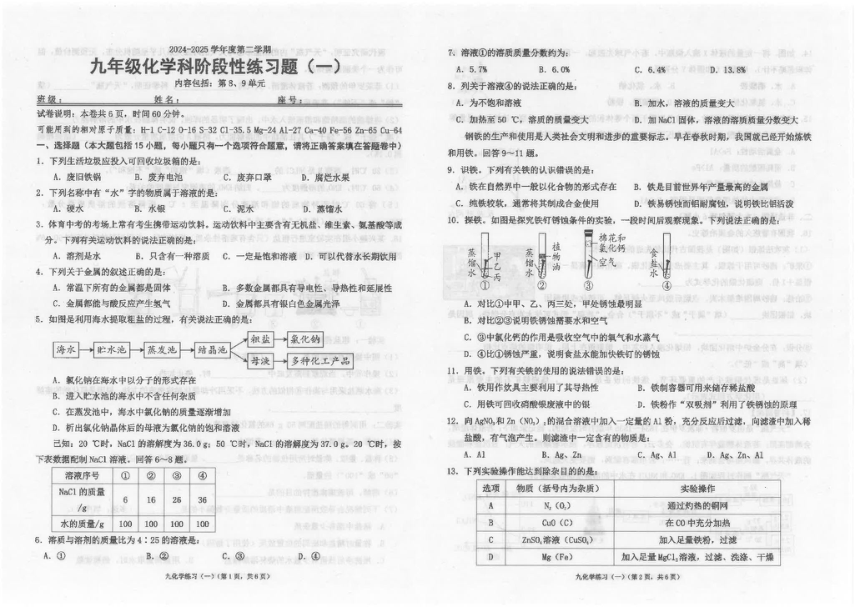 2024-2025 学年度第二学期
九年级化学科阶段性练习题（一）
内容包括：第 8、9 单元
班级： 姓名： 座号：
试卷说明：本卷共 6 页，时间 60 分钟．
可能用到的相对原子质量：H-1 C-12 O-16 S-32 Cl-35.5 Mg-24 Al-27 Ca-40 Fe-56 Zn-65 Cu-64
一、选择题（本大题包括 15 小题，每小题只有一个选项符合题意，请将正确答案填在答题卷中）
1. 下列生活垃圾应投入可回收垃圾箱的是：
A. 废旧铁锅 B. 废弃电池 C. 废弃口罩 D. 腐烂水果
2. 下列名称中有“水”字的物质属于溶液的是：
A. 硬水 B. 水银 C. 泥水 D. 蒸馏水
3. 体育中考的考场上常有考生携带运动饮料，运动饮料中主要含有无机盐、维生素、氨基酸等成
分。下列有关运动饮料的说法正确的是：
A. 溶剂是水 B. 只含有一种溶质 C. 一定是饱和溶液 D. 可以代替水长期饮用
4. 下列关于金属的叙述正确的是：
A. 常温下所有的金属都是固体 B. 多数金属都具有导电性、导热性和延展性
C. 金属都能与酸反应产生氢气 D. 金属都具有银白色金属光泽
5. 如图是利用海水提取粗盐的过程，有关说法正确的是：
海水 贮水池 蒸发池 结晶池 粗盐 氯化钠
母液 多种化工产品
A. 氯化钠在海水中以分子的形式存在
B. 进入贮水池的海水中不含任何杂质
C. 在蒸发池中，海水中氯化钠的质量逐渐增加
D. 析出氯化钠晶体后的母液为氯化钠的饱和溶液
已知：20 ℃时，NaCl 的溶解度为 36.0 g；50 ℃时，NaCl 的溶解度为 37.0 g。20 ℃时，按
下表数据配制 NaCl 溶液。回答 6~8 题。
溶液序号 ① ② ③ ④
NaCl 的质量
/g 6 16 26 36
水的质量/g 100 100 100 100
6. 溶质与溶剂的质量比为 4∶25 的溶液是：
A. ① B. ② C. ③ D. ④
九化学练习（一）（第 1 页，共 6 页）
7. 溶液①的溶质质量分数约为：
A. 5.7% B. 6.0% C. 6.4% D. 13.8%
8. 列关于溶液④的说法正确的是：
A. 为不饱和溶液 B. 加水，溶液的质量变大
C. 加热至 50 ℃，溶质的质量变大 D. 加 NaCl 固体，溶液的溶质质量分数变大
钢铁的生产和使用是人类社会文明和进步的重要标志。早在春秋时期，我国就已经开始炼铁
和用铁。回答 9～11 题。
9. 识铁。下列有关铁的认识错误的是：
A. 铁在自然界中一般以化合物的形式存在 B. 铁是目前世界年产量最高的金属
C. 纯铁较软，通常将其制成合金使用 D. 铁易锈蚀而铝耐腐蚀，说明铁比铝活泼
10. 探铁。如图是探究铁钉锈蚀条件的实验，一段时间后观察现象。下列说法正确的是：
蒸馏水 甲 乙 丙 蒸馏水 植物油 棉花和 氯化钙 空气 食盐水
① ② ③ ④
A. 对比①中甲、乙、丙三处，甲处锈蚀最明显
B. 对比②③说明铁锈蚀需要水和空气
C. ③中氯化钙的作用是吸收空气中的氧气和水蒸气
D. ④比①锈蚀严重，说明食盐水能加快铁钉的锈蚀
11. 用铁。下列有关铁的使用的说法错误的是：
A. 铁用作炊具主要利用了其导热性 B. 铁制容器可用来储存稀盐酸
C. 用铁可回收硝酸银废液中的银 D. 铁粉作“双吸剂”利用了铁锈蚀的原理
12. 向 AgNO₃和 Zn（NO₃）₂的混合溶液中加入一定量的 Al 粉，充分反应后过滤，向滤渣中加入稀
盐酸，有气泡产生。则滤渣中一定含有的物质是：
A. Al B. Ag、Zn C. Ag、Al D. Ag、Zn、Al
13. 下列实验操作能达到除杂目的的是：
选项 物质（括号内为杂质） 实验操作
A N₂（O₂） 通过灼热的铜网
B CuO（C） 在 CO 中充分加热
C ZnSO₄溶液（CuSO₄） 加入足量铁粉，过滤
D Mg（Fe） 加入足量 MgCl₂溶液，过滤、洗涤、干燥
九化学练习（一）（第 2 页，共 6 页）